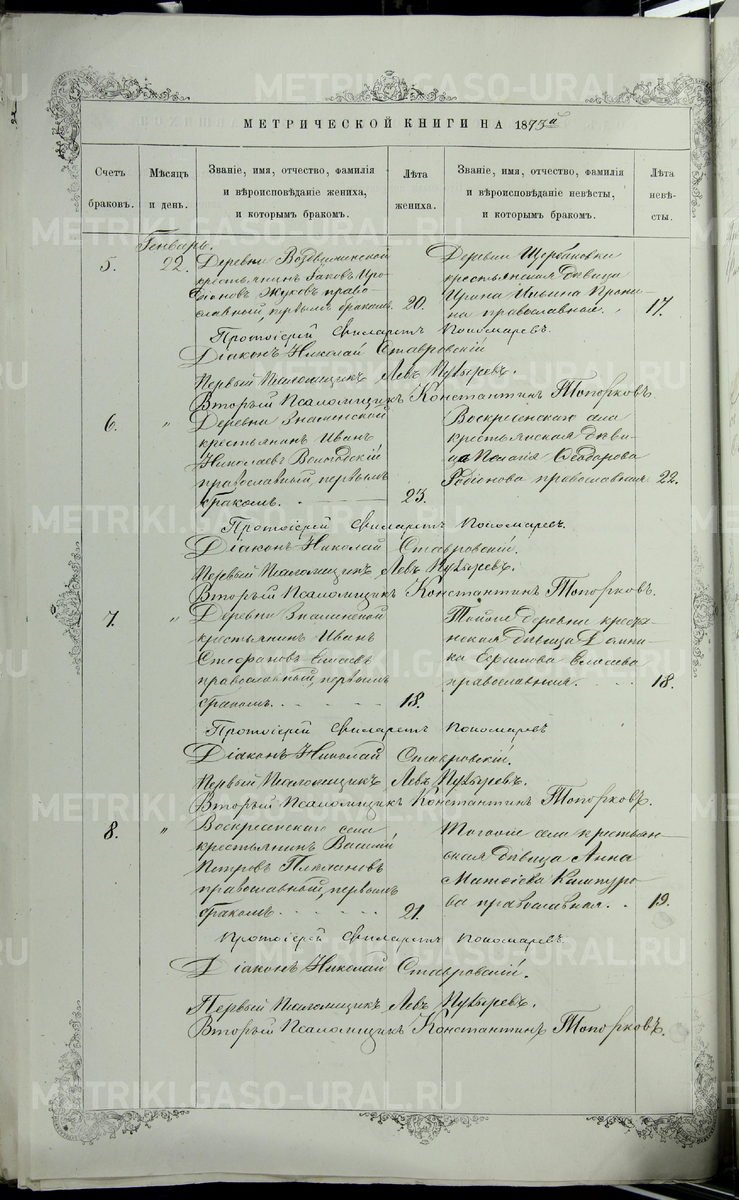 МЕТРИЧЕСКОЙ КНИГИ НА 1875й
Счетъ браковъ.
Мѣсяцъ и день.
Званіе, имя, отчество, фамилія
и вѣроисповѣданіе жениха,
и которымъ бракомъ.
Лѣта жениха.
Званіе, имя, отчество, фамилія
и вѣроисповѣданіе невѣсты,
и которымъ бракомъ.
Лѣта невѣсты.
Генварь.
5.
22.
Деревни Воздвиженской
крестьянинъ Іаковъ
Жуковъ право-
славный, первымъ бракомъ.
20.
Деревни Щербаковки
крестьянская дѣвица
Ирина Ильина
на православная.
17.
Протоіерей Филаретъ Пономаревъ.
Діаконъ Николай Ставровскій
Первый Псаломщикъ Левъ Пузыревъ.
Второй Псаломщикъ Константинъ Топорковъ.
6.
"
Деревни Знаменской
крестьянинъ Иванъ
Николаевъ Вологодскій
православный, первымъ
бракомъ.
23.
Воскресенскаго села
крестьянская дѣви-
ца Пелагія Ѳеодорова
Родіонова православная.
22.
Протоіерей Филаретъ Пономаревъ.
Діаконъ Николай Ставровскій.
Первый Псаломщикъ Левъ Пузыревъ.
Второй Псаломщикъ Константинъ Топорковъ.
7.
"
Деревни Знаменской
крестьянинъ Иванъ
Стефановъ
православный, первымъ
бракомъ.
18.
Тойже деревни кресть-
янская дѣвица Домни-
ка Ефимова
православная.
18.
Протоіерей Филаретъ Пономаревъ
Діаконъ Николай Ставровскій.
Первый Псаломщикъ Левъ Пузыревъ.
Второй Псаломщикъ Константинъ Топорковъ.
8.
"
Воскресенскаго села
крестьянинъ Василій
Петровъ Плехановъ
православный, первымъ
бракомъ.
21.
Тогоже села крестьян-
ская дѣвица Анна
Матѳіева
ва православная.
19.
Протоіерей Филаретъ Пономаревъ.
Діаконъ Николай Ставровскій.
Первый Псаломщикъ Левъ Пузыревъ.
Второй Псаломщикъ Константинъ Топорковъ.
METRIKI.GASO-URAL.RU